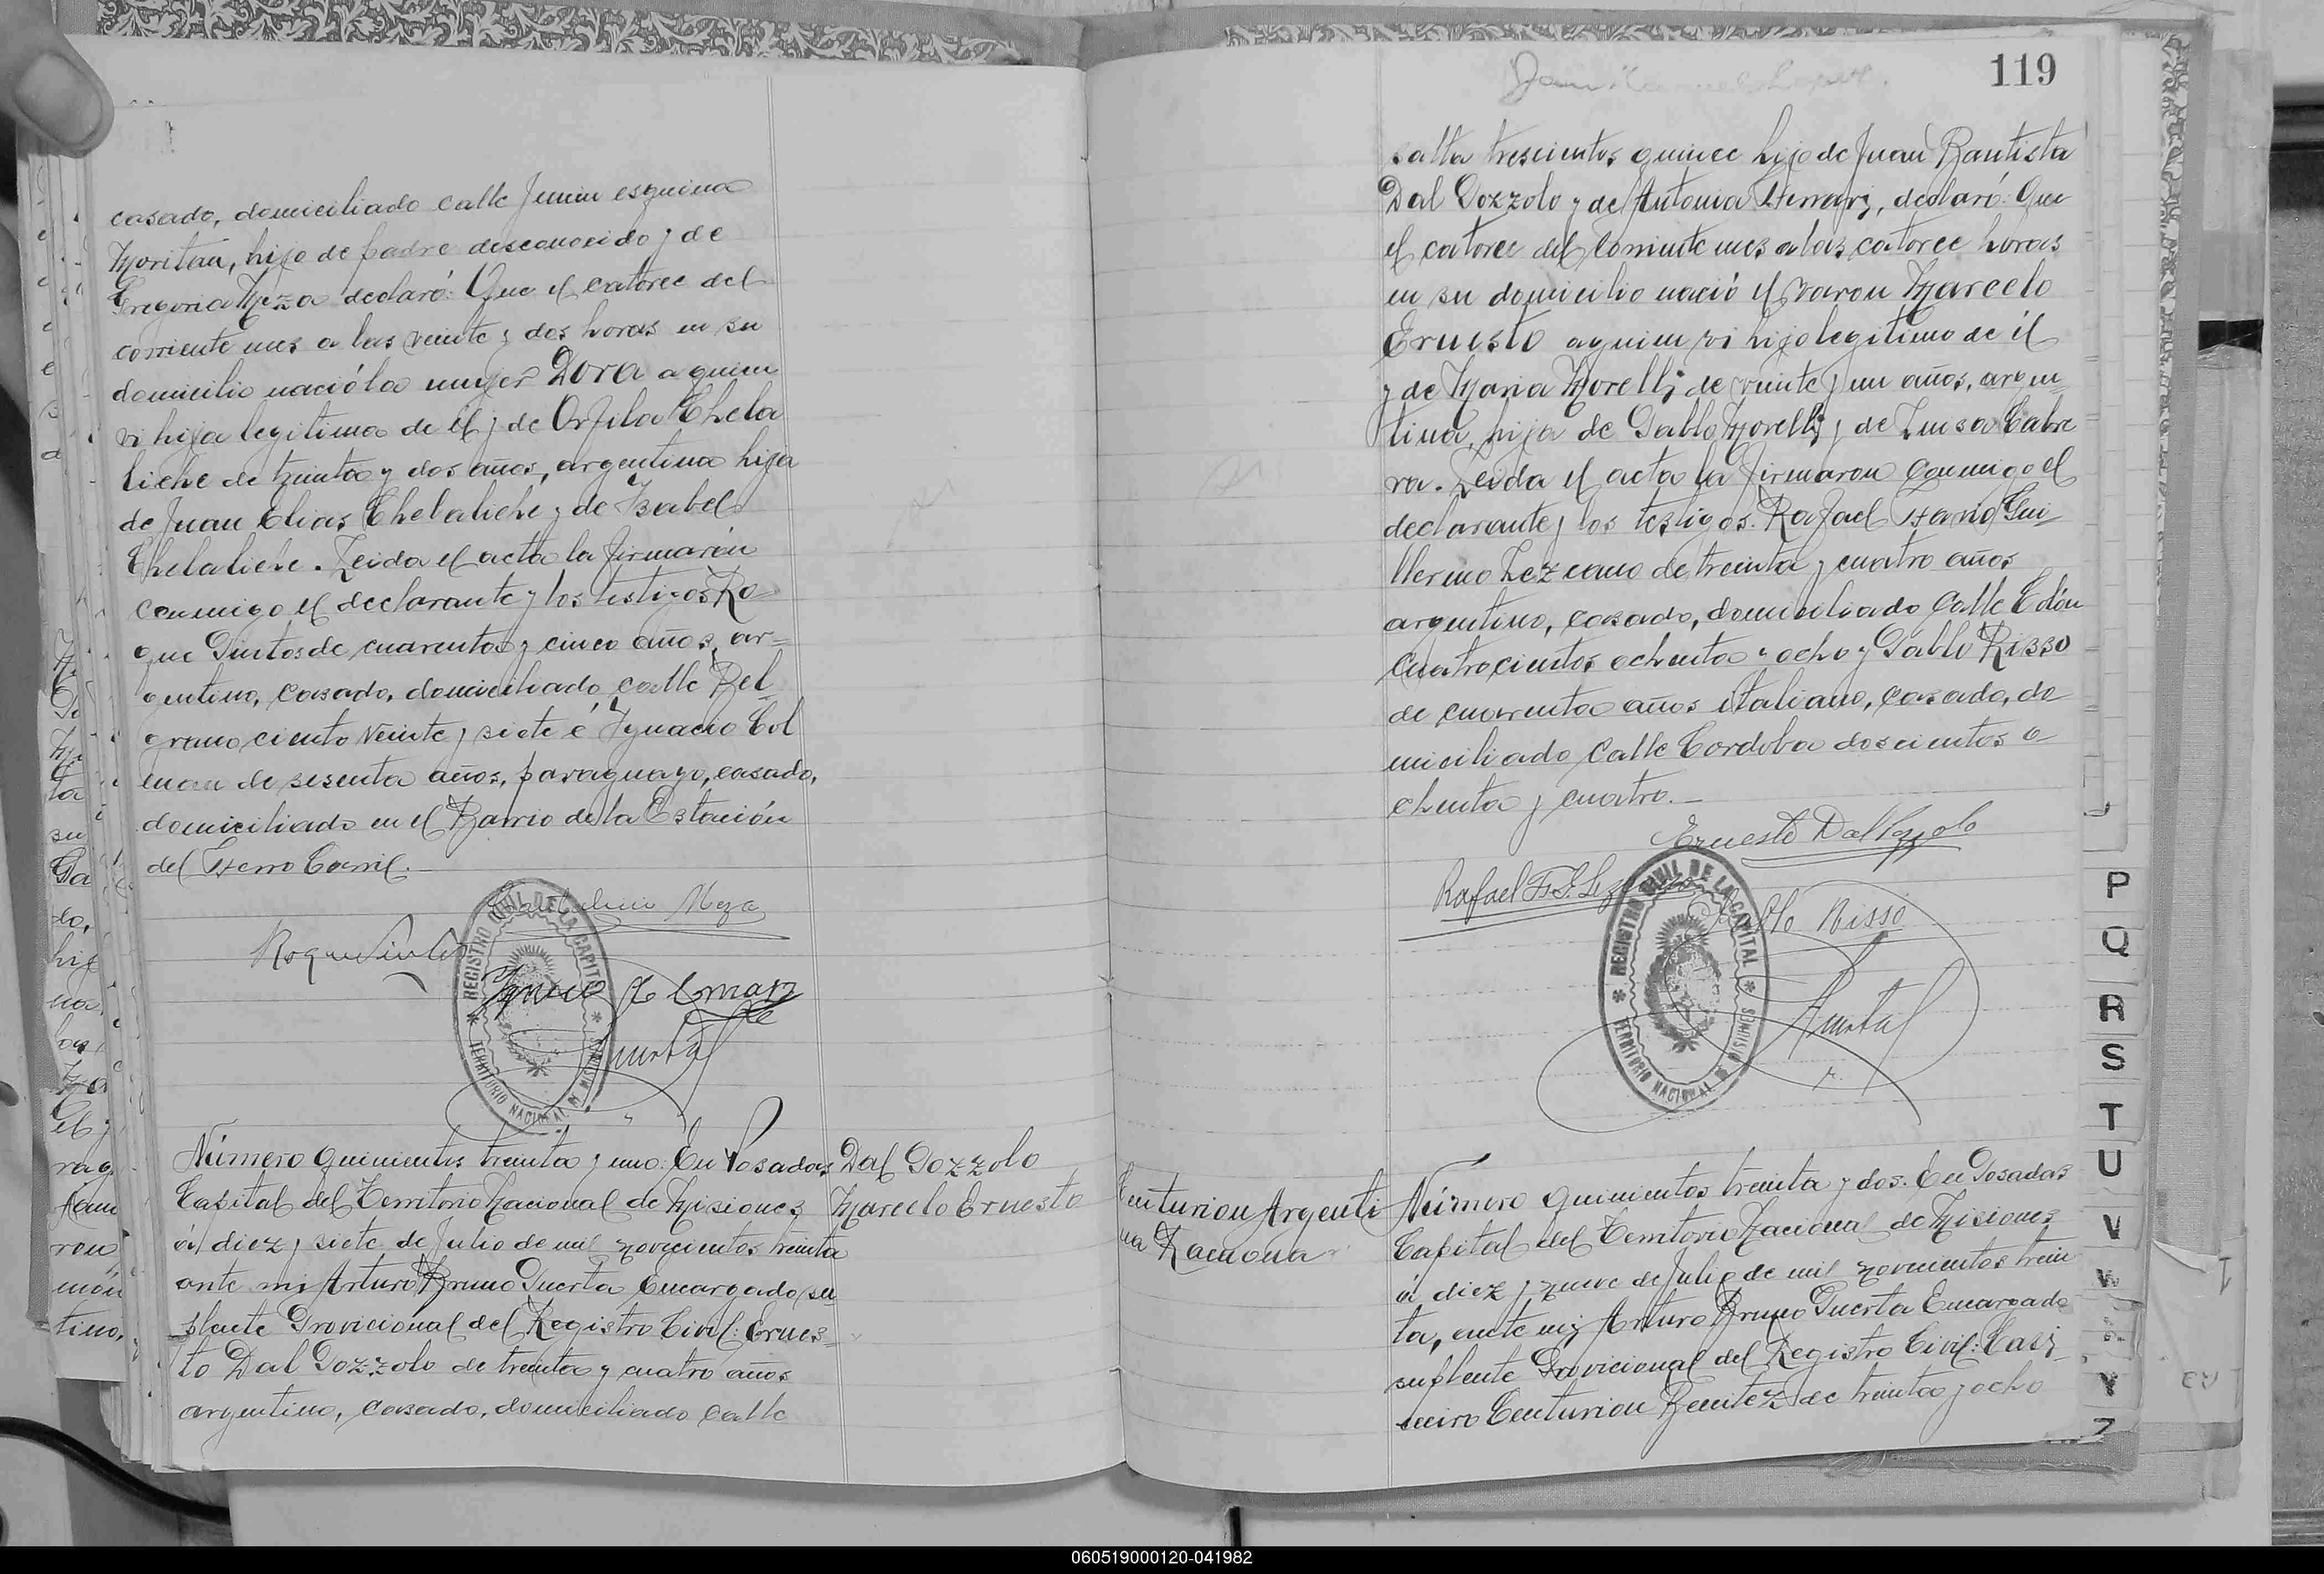 casado, domiciliado calle Junin esquina
Moritán, hijo de padre desconocido y de
Gregoria Meza declaró: Que el catorce del
corriente mes a las veinte y dos horas en su
domicilio nació la mujer Dora a quien
vi hija legitima de él y de Orfila Chela
liche de treinta y dos años, argentina hija
de Juan Elias Chelaliche y de Isabel
Chelaliche. Leida el acta la firmarón
conmigo el declarante y los testigos Ro
que Pintos de cuarenta y cinco años, ar=
gentino, casado, domiciliado calle Bel
grano ciento veinte y siete é Ignacio Col
man de sesenta años, paraguayo, casado,
domiciliado en el Barrio de la Estación
del Ferro Carril.
Meza
Roque Pintos
REGISTRO CIVIL DE LA CAPITAL
TERRITORIO NACIONAL DE MISIONES
Ignacio Colman
Número quinientos treinta y uno. En Posadas
Capital del Territorio Nacional de Misiones
á diez y siete de Julio de mil novecientos treinta
ante mi Arturo Bruno Puerta Encargado su
plente Provicional del Registro Civil: Ernes=
to Dal Pozzolo de treinta y cuatro años
argentino, casado, domiciliado calle
Dal Pozzolo
Marcelo Ernesto
119
salta trescientos quince hijo de Juan Bautista
Dal Pozzolo y de Antonia Ferrari, declaró: Que
el catorce del corriente mes a las catorce horas
en su domicilio nació el varon Marcelo
Ernesto a quien vi hijo legitimo de él
y de Maria Morelli de veinte y un años, argen
tina, hija de Pablo Morelli y de Luisa Cabre
ra. Leida el acta la firmaron conmigo el
declarante y los testigos. Rafael Fario Gui
llermo Lezcano de treinta y cuatro años
argentino, casado, domiciliado calle Colón
cuatrocientos ochenta y ocho y Pablo Risso
de cuarenta años italiano, casado, do
miciliado calle Cordoba doscientos o
chenta y cuatro.
Ernesto Dal Pozzolo
Rafael F. G. Lezcano
Pablo Risso
REGISTRO CIVIL DE LA CAPITAL
TERRITORIO NACIONAL DE MISIONES
Centurion Argenti
na Ramona
Número quinientos treinta y dos. En Posadas
Capital del Territorio Nacional de Misiones
á diez y nueve de Julio de mil novecientos trein
ta, ante mi Arturo Bruno Puerta Encargado
suplente Provicional del Registro Civil: Casi
miro Centurion Benitez de treinta y ocho
P
Q
R
S
T
U
V
W
Y
Z
060519000120-041982